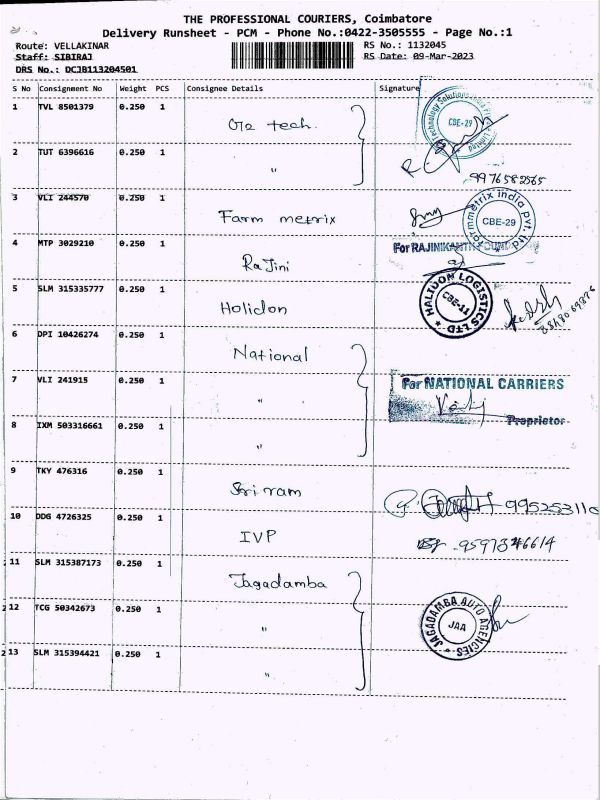 THE PROFESSIONAL COURIERS, Coimbatore
Delivery Runsheet - PCM - Phone No.:0422-3505555 - Page No.:1
Route: VELLAKINAR
RS No.: 1132045
Staff: SIBIRAJ
RS Date: 09-Mar-2023
DRS No.: DCJB113204501
S No Consignment No Weight PCS Consignee Details Signature
1 TVL 8501379 0.250 1
tech.
CBE-29
2 TUT 6396616 0.250 1
"
9976582565
3 VLI 244570 0.250 1
Farm metrix
CBE-29
4 MTP 3029210 0.250 1
Rajini
For RAJINIKANTH
5 SLM 315335777 0.250 1
Holidon
HALIDON LOGISTICS LTD
CBE-11
6 DPI 10426274 0.250 1
National
7 VLI 241915 0.250 1
"
For NATIONAL CARRIERS
Proprietor
8 IXM 503316661 0.250 1
"
9 TKY 476316 0.250 1
Sri ram
995253110
10 DDG 4726325 0.250 1
IVP
11 SLM 315387173 0.250 1
Jagadamba
12 TCG 50342673 0.250 1
"
JAGADAMBA AUTO AGENCIES
JAA
13 SLM 315394421 0.250 1
"